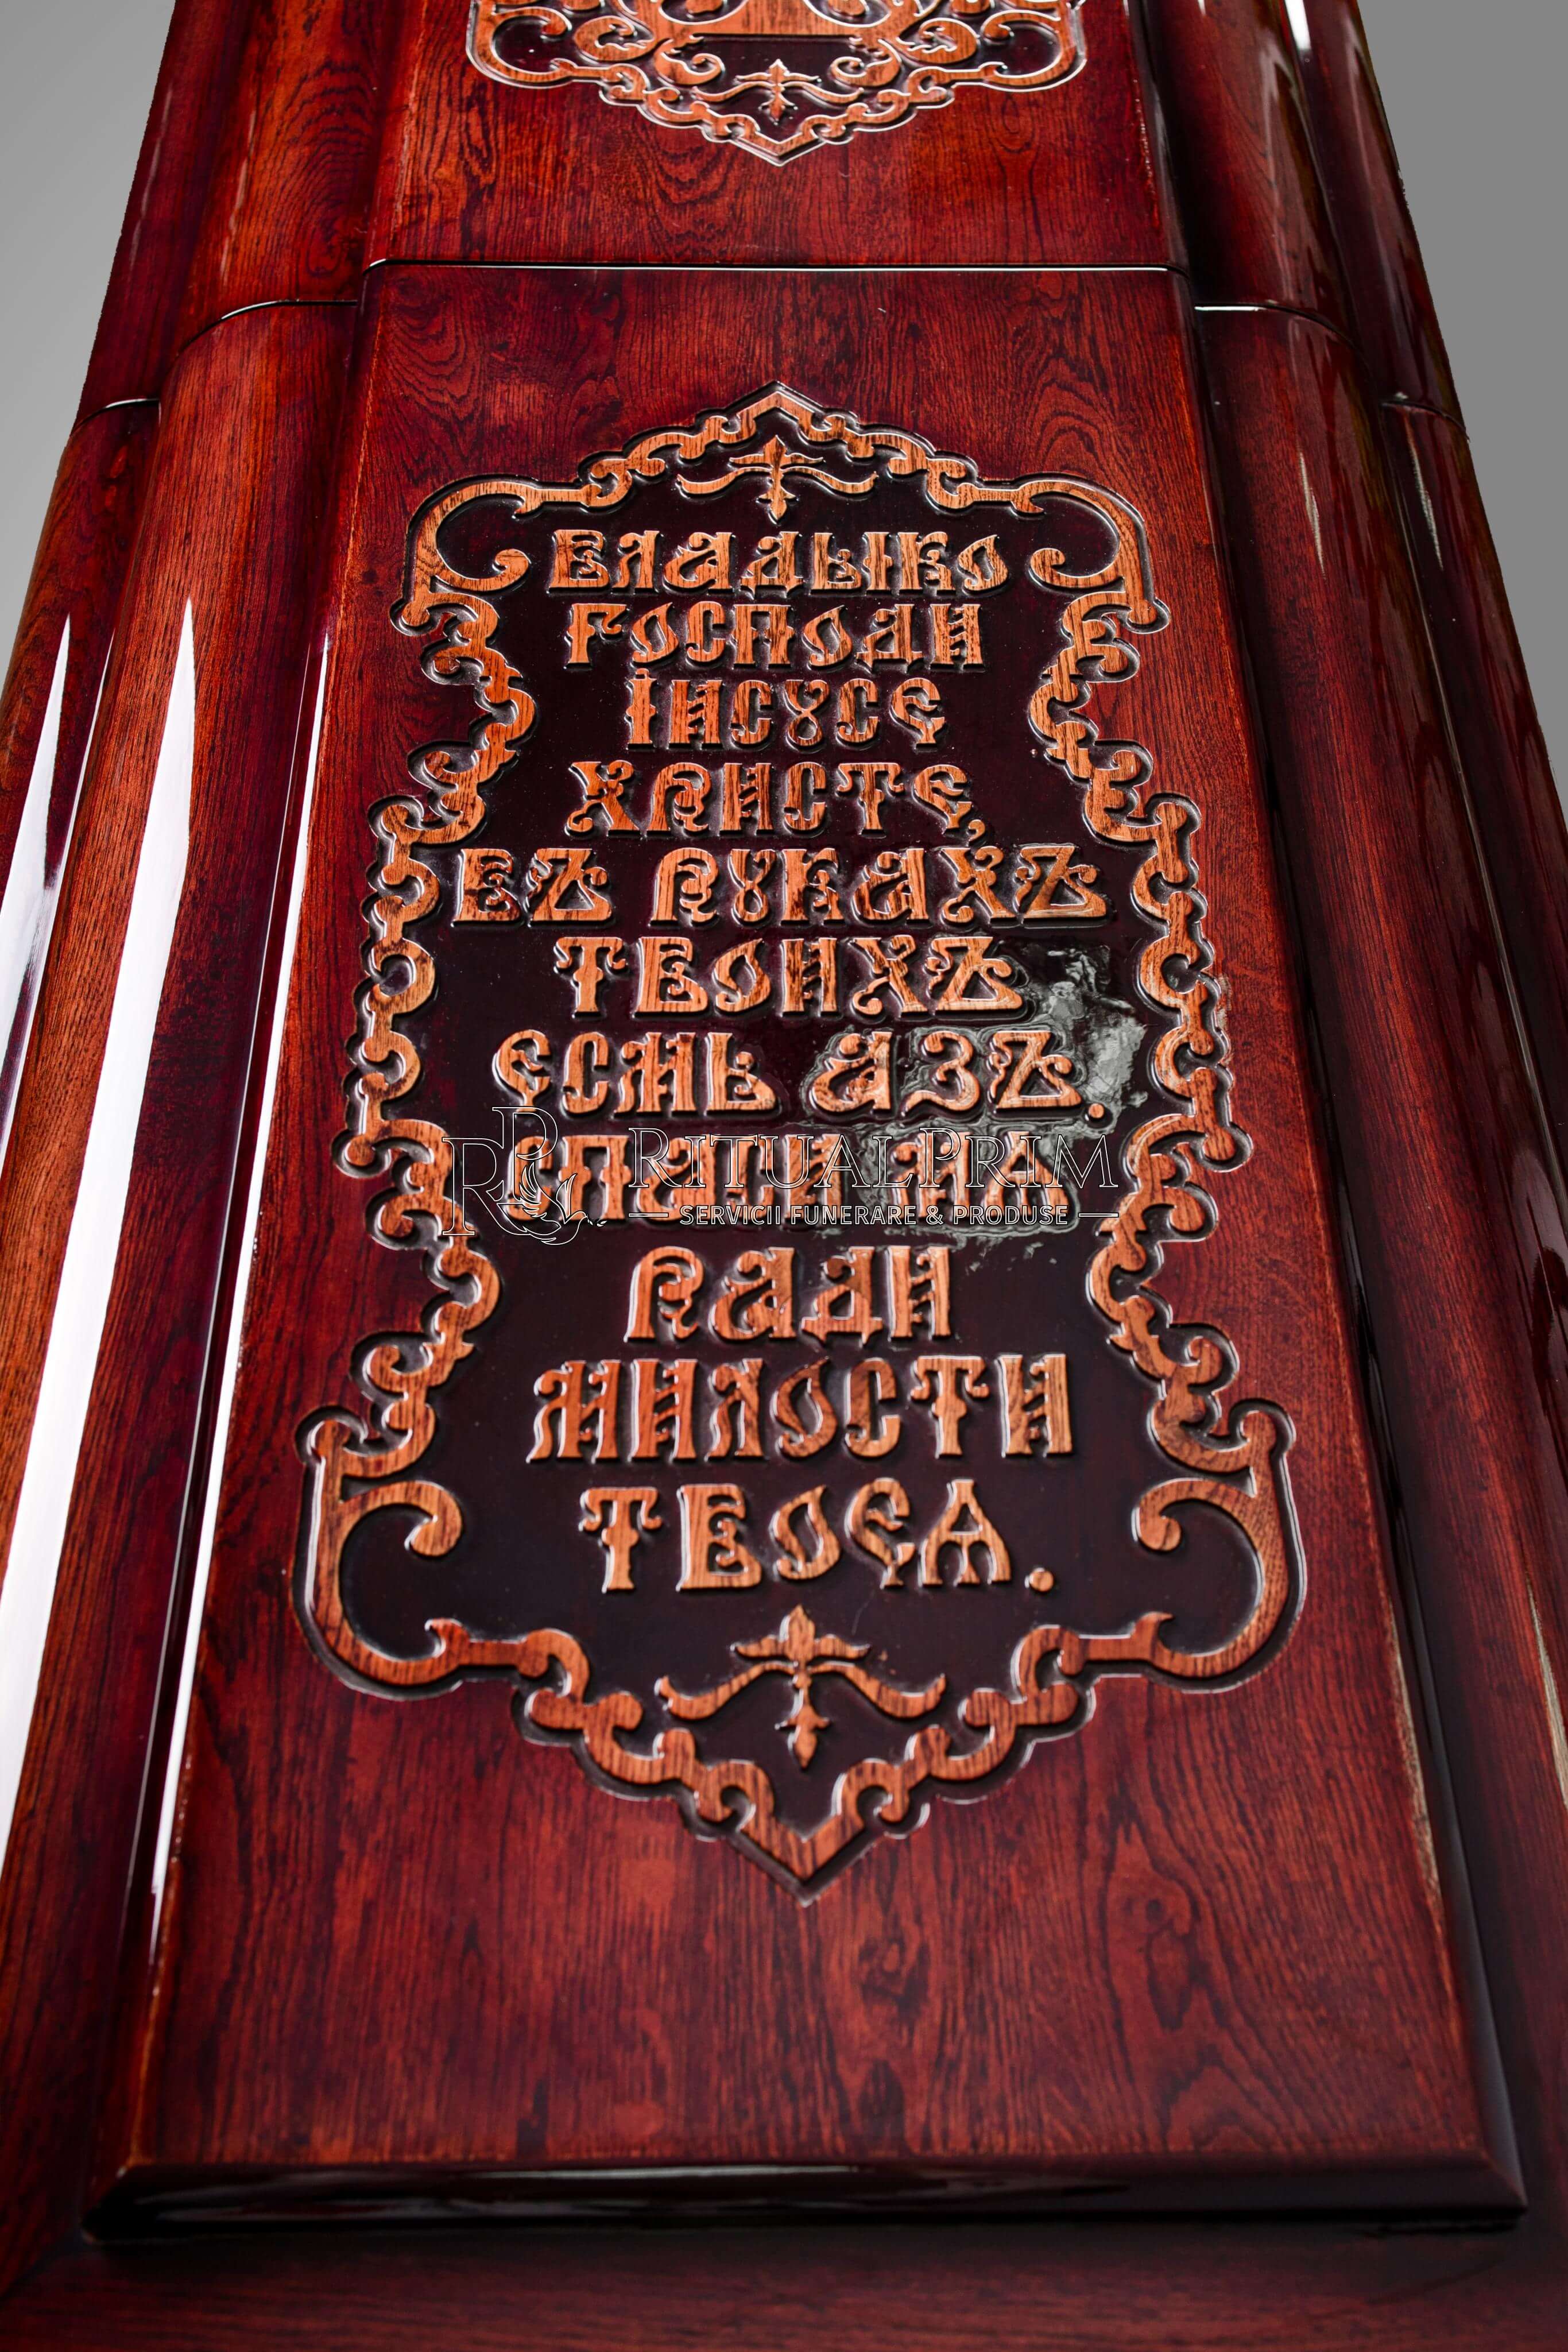 Владыко
Господи
Іисꙋсе
Христе,
въ рꙋкахъ
твоихъ
есмь азъ.
спаси мѧ
ради
милости
твоеѧ.
RP RITUALPRIM
SERVICII FUNERARE & PRODUSE